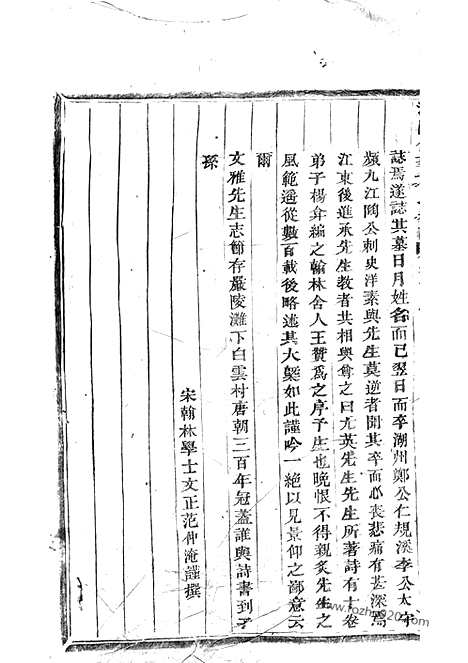 誌焉遂誌其墓日月姓名而已翌日而卒湖州鄭公仁規溪李公太
類九江陶公刺史洋素與先生莫逆者聞其卒而心喪悲痛有甚深焉
江東後進承先生教者共相與尊之曰元英先生先生所著詩有十卷
弟子楊弇編之翰林舍人王贊為之序予生也晚恨不得親炙先生之
風範遥從數百載後略述其大槩如此謹吟一絶以見景仰之鄙意云
爾
文雅先生志節存嚴陵灘下白雲村唐朝三百年冠蓋誰與詩書到子
孫
宋翰林學士文正范仲淹謹撰
www.fozhu920.com